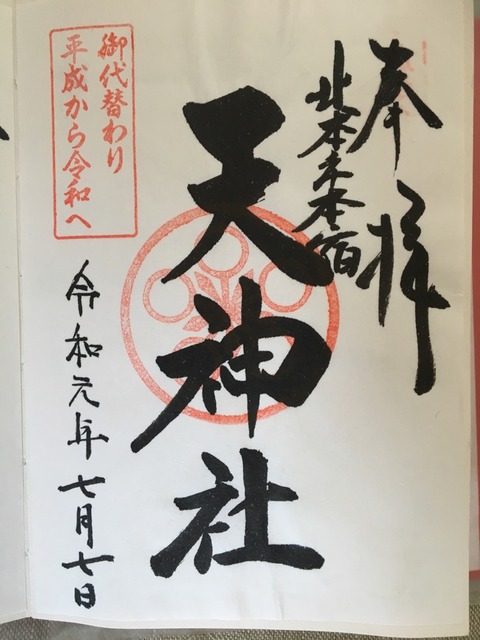 奉拝
北本本宿
天神社
御代替わり
平成から令和へ
令和元年七月七日